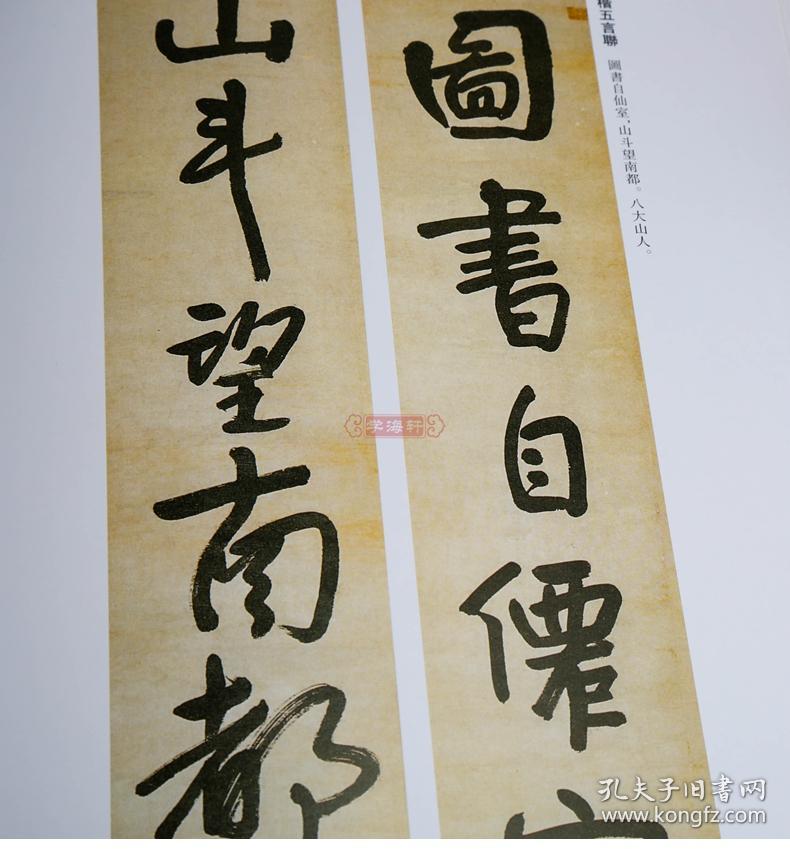 楷五言聯
圖書自仙室，山斗望南都。八大山人。
圖書自僊室
山斗望南都
学海轩
孔夫子旧书网
www.kongfz.com